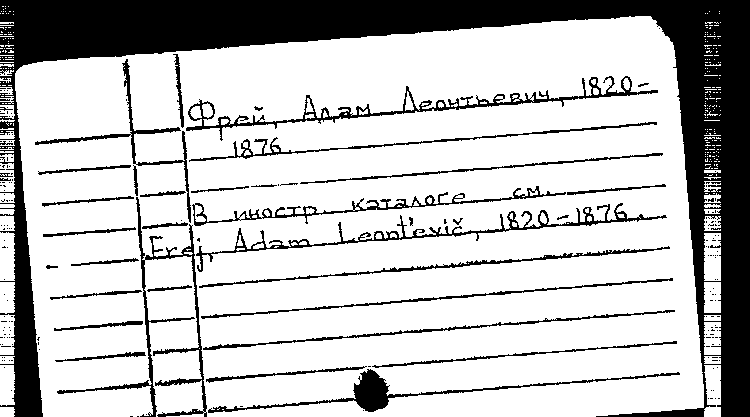 Фрей, Адам Леонтьевич, 1820-
1876.
В иностр. каталоге см.
Frej, Adam Leont'evič, 1820-1876.